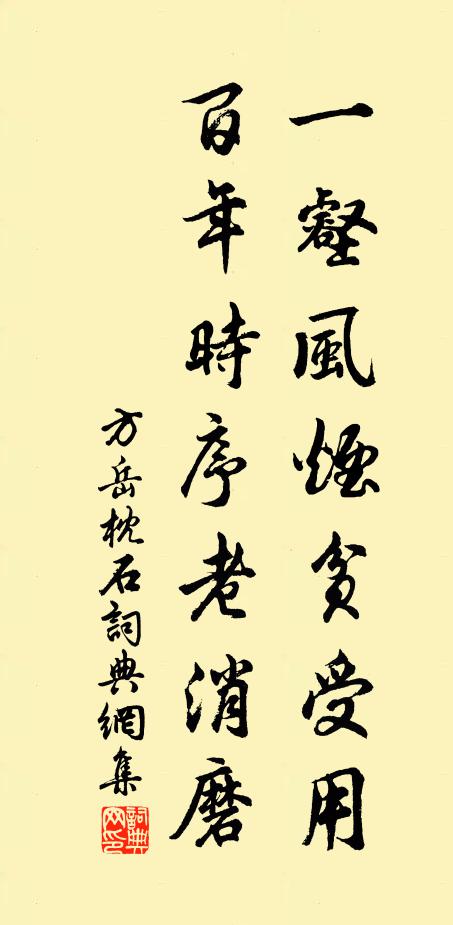 一壑風煙貧受用
百年時序老消磨
方岳枕石詞典網集
詞典網印